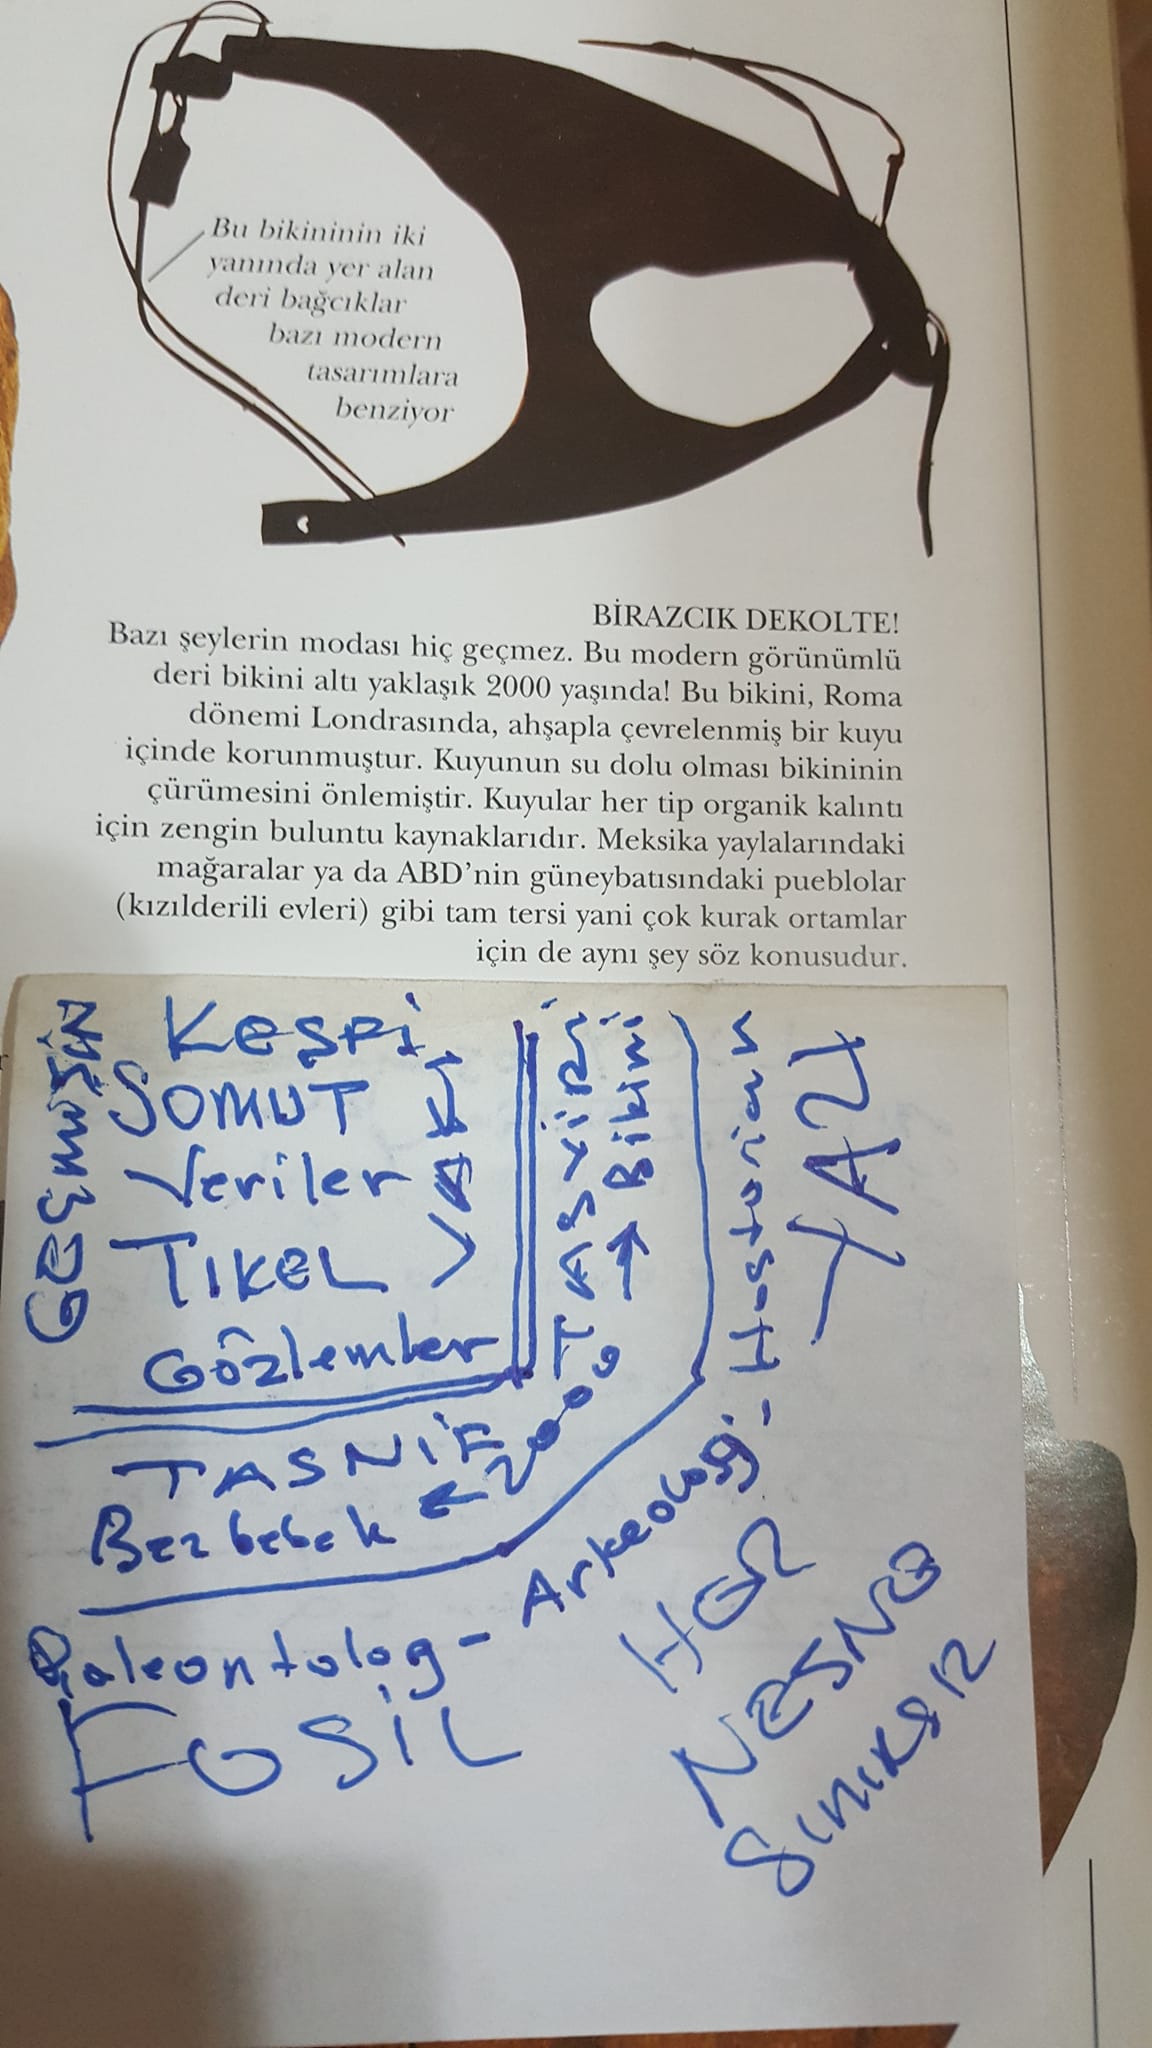 Bu bikininin iki
yanında yer alan
deri bağcıklar
bazı modern
tasarımlara
benziyor
BİRAZCIK DEKOLTE!
Bazı şeylerin modası hiç geçmez. Bu modern görünümlü
deri bikini altı yaklaşık 2000 yaşında! Bu bikini, Roma
dönemi Londrasında, ahşapla çevrelenmiş bir kuyu
içinde korunmuştur. Kuyunun su dolu olması bikininin
çürümesini önlemiştir. Kuyular her tip organik kalıntı
için zengin buluntu kaynaklarıdır. Meksika yaylalarındaki
mağaralar ya da ABD'nin güneybatısındaki pueblolar
(kızılderili evleri) gibi tam tersi yani çok kurak ortamlar
için de aynı şey söz konusudur.
GEÇmişiN
Keşfi
SOMUT
Veriler
TIKEL
Gözlemler
TASViR
Bikini
TASNİF
Bez bebek
2000
Paleontolog -
Arkeoloji -
Historian
FOSİL
TAŞ
HER
NESNE